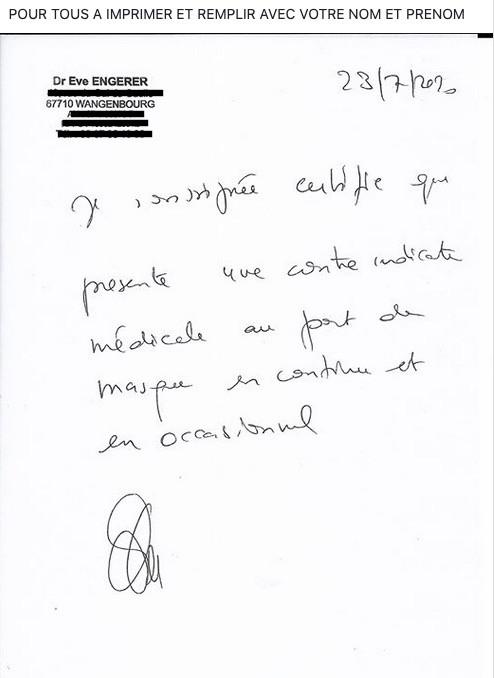 POUR TOUS A IMPRIMER ET REMPLIR AVEC VOTRE NOM ET PRENOM
Dr Eve ENGERER
67710 WANGENBOURG
23/7/2020
Je soussignée certifie que
presente une contre indicatio
médicale au port de
masque en continu et
en occasionnel